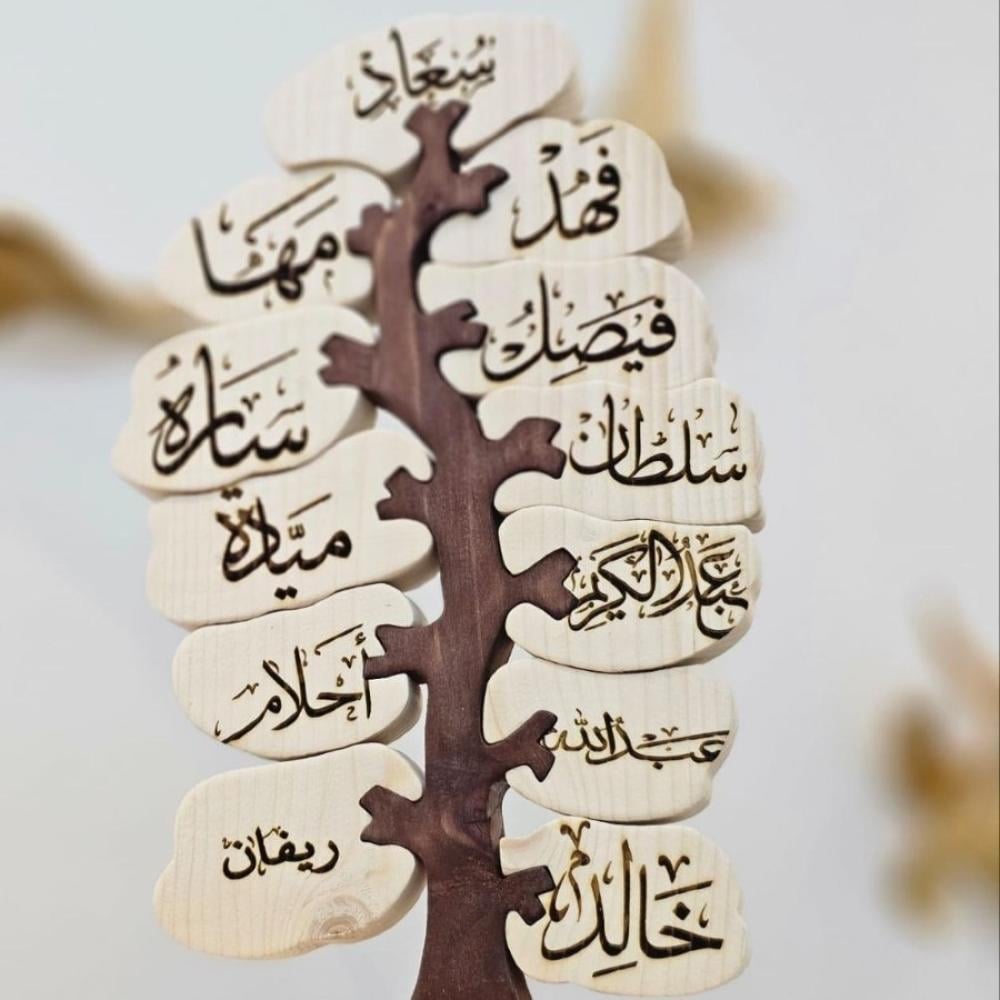 سُعَادْ
فَهْدُ
مَهَا
فَيْصِلُ
سَارَهُ
سَلْطَانْ
مَيَّادَةْ
عَبْدُ الْكَرِيمْ
أَحْلَامْ
عَبْدُ اللّٰه
ريفان
خَالِدْ